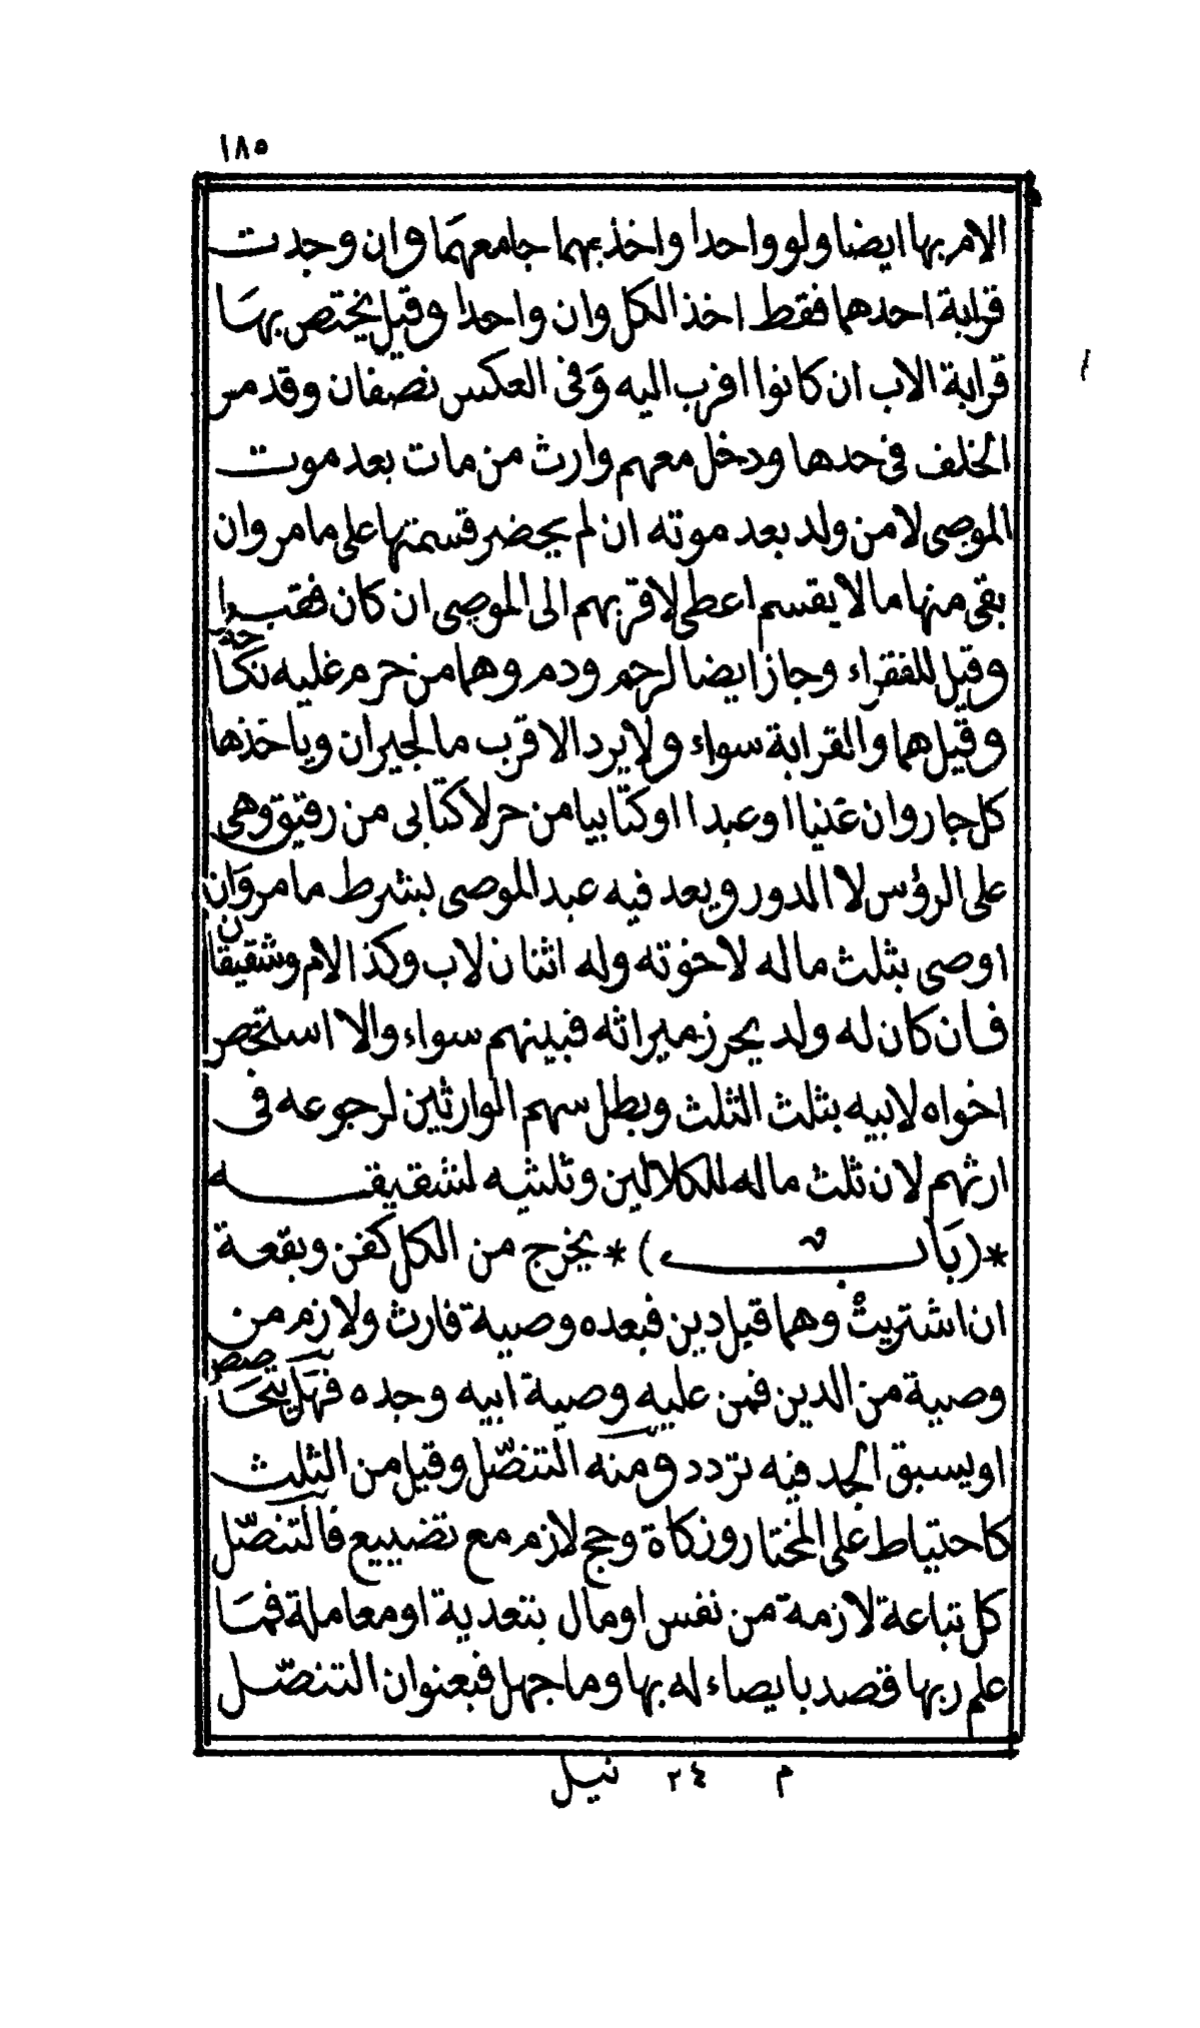 ١٨٥
الامر بها ايضا ولو واحدا واخذ بهما جامعهما وان وجدت
قرابة احدهما فقط اخذ الكل وان واحدا وقيل يختص بها
قرابة الاب ان كانوا اقرب اليه وفى العكس نصفان وقد مر
الخلف فى حدها ودخل معهم وارث من مات بعد موت
الموصى لا من ولد بعد موته ان لم يحضر قسمتها على ما مر وان
بقى منها ما لا يقسم اعطى لاقربهم الى الموصى ان كان فقيرا
وقيل للفقراء وجاز ايضا لرحم ودم وهما من حرم عليه نكاحه
وقيل هما والقرابة سواء ولا يرد الاقرب ما لجيران وياخذها
كل جار وان غنيا او عبدا او كتابيا من حر لا كتابى من رقيق وهى
على الرؤس لا الدور ويعد فيه عبد الموصى بشرط ما مر وان
اوصى بثلث ماله لاخوته وله اثنان لاب وكذا لام وشقيقان
فان كان له ولد يحرز ميراثه فبينهم سواء والا استخص
اخواه لابيه بثلث الثلث وبطل سهم الوارثين لرجوعه فى
ارثهم لان ثلث ماله للكلالين وثلثيه لشقيقه
*(باب)* يخرج من الكل كفن وبقعة
ان اشتريت وهما قيل دين فبعده وصية فارث ولازم من
وصية من الدين فمن عليه وصية ابيه وجده فهل يتحاصص
او يسبق الجد فيه تردد ومنه التنصل وقيل من الثلث
كاحتياط على المختار وزكاة وحج لازم مع تضييع فالتنصل
كل تباعة لازمة من نفس او مال بتعدية او معاملة فما
علم ربها قصد بايصاء له بها وما جهل فبعنوان التنصل
م ٢٤ نيل